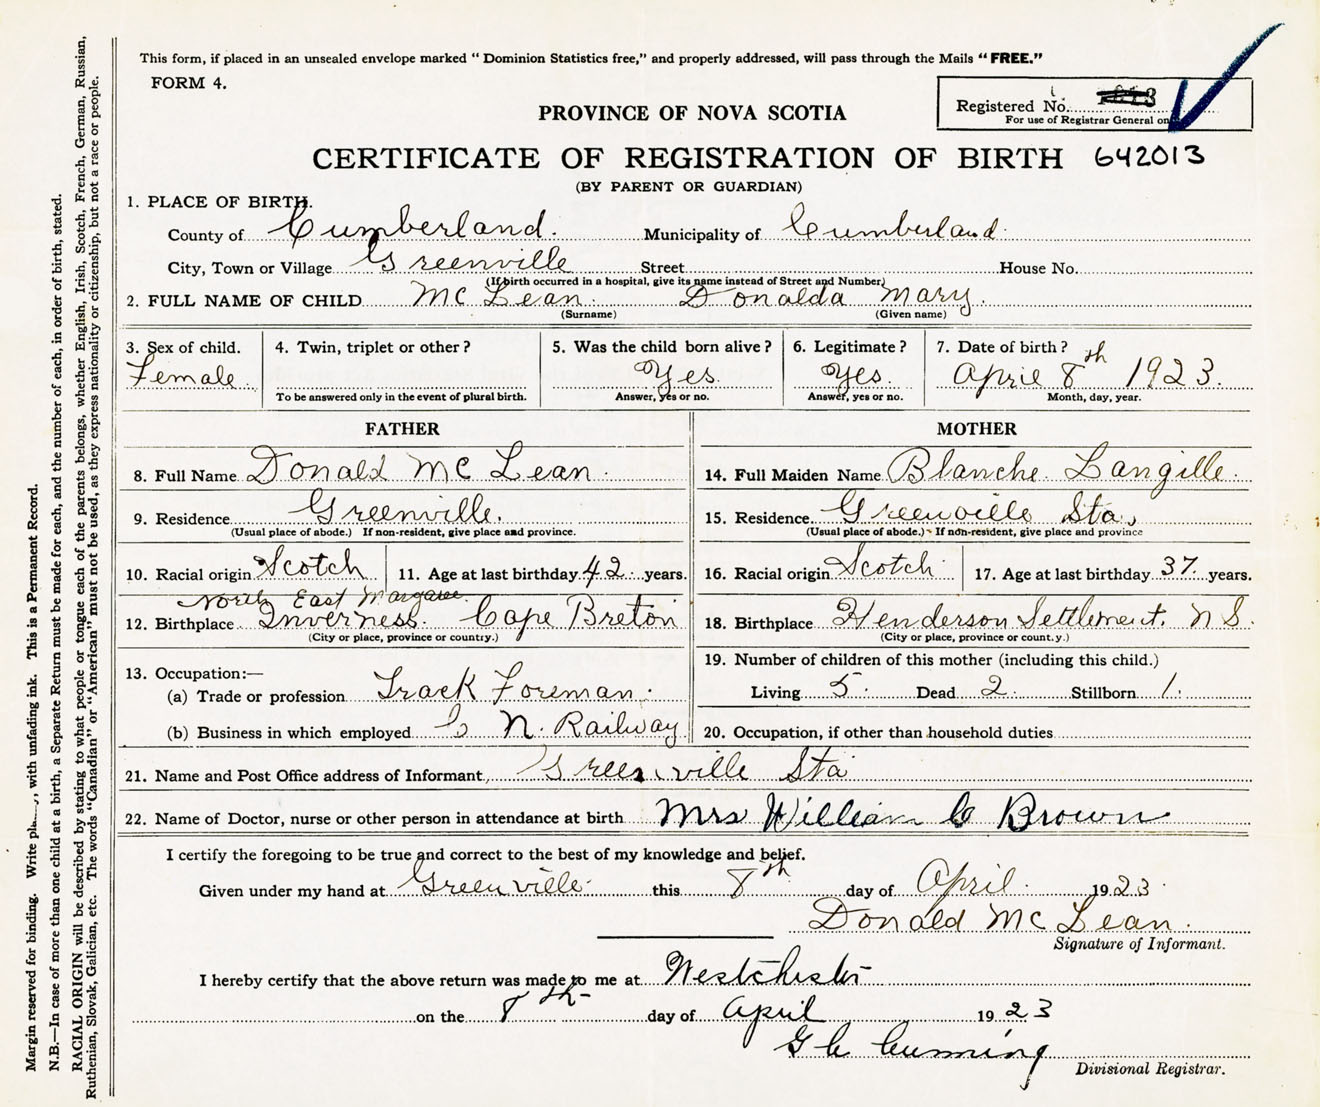 This form, if placed in an unsealed envelope marked “ Dominion Statistics free,” and properly addressed, will pass through the Mails “ FREE.”
FORM 4.
Registered No.
For use of Registrar General on
PROVINCE OF NOVA SCOTIA
CERTIFICATE OF REGISTRATION OF BIRTH 642013
(BY PARENT OR GUARDIAN)
1. PLACE OF BIRTH.
County of Cumberland. Municipality of Cumberland
City, Town or Village Greenville Street House No.
(If birth occurred in a hospital, give its name instead of Street and Number)
2. FULL NAME OF CHILD Mc Lean. Donalda Mary.
(Surname) (Given name)
3. Sex of child. 4. Twin, triplet or other? 5. Was the child born alive? 6. Legitimate? 7. Date of birth?
Female. Yes. Yes. April 8th 1923.
To be answered only in the event of plural birth. Answer, yes or no. Answer, yes or no. Month, day, year.
FATHER MOTHER
8. Full Name Donald Mc Lean. 14. Full Maiden Name Blanche Langille.
9. Residence Greenville. 15. Residence Greenville Sta,
(Usual place of abode.) If non-resident, give place and province. (Usual place of abode.) If non-resident, give place and province
10. Racial origin Scotch 11. Age at last birthday 42 years. 16. Racial origin Scotch 17. Age at last birthday 37 years.
North East Margaree
12. Birthplace Inverness. Cape Breton 18. Birthplace Henderson Settlement. N S.
(City or place, province or country.) (City or place, province or count.y.)
13. Occupation:— 19. Number of children of this mother (including this child.)
(a) Trade or profession Track Foreman. Living 5. Dead 2. Stillborn 1.
(b) Business in which employed C N. Railway 20. Occupation, if other than household duties
21. Name and Post Office address of Informant, Greenville Sta
22. Name of Doctor, nurse or other person in attendance at birth Mrs William C Brown
I certify the foregoing to be true and correct to the best of my knowledge and belief.
Given under my hand at Greenville. this 8th day of April. 1923
Donald Mc Lean.
Signature of Informant.
I hereby certify that the above return was made to me at Westchester
on the 8th day of April 1923
G C Cumming
Divisional Registrar.
Margin reserved for binding. Write with unfading ink. This is a Permanent Record.
N.B.—In case of more than one child at a birth, a Separate Return must be made for each, and the number of each, in order of birth, stated.
RACIAL ORIGIN will be described by stating to what people or tongue each of the parents belongs, whether English, Irish, Scotch, French, German, Russian,
Ruthenian, Slovak, Galician, etc. The words “Canadian” or “American” must not be used, as they express nationality or citizenship, but not a race or people.